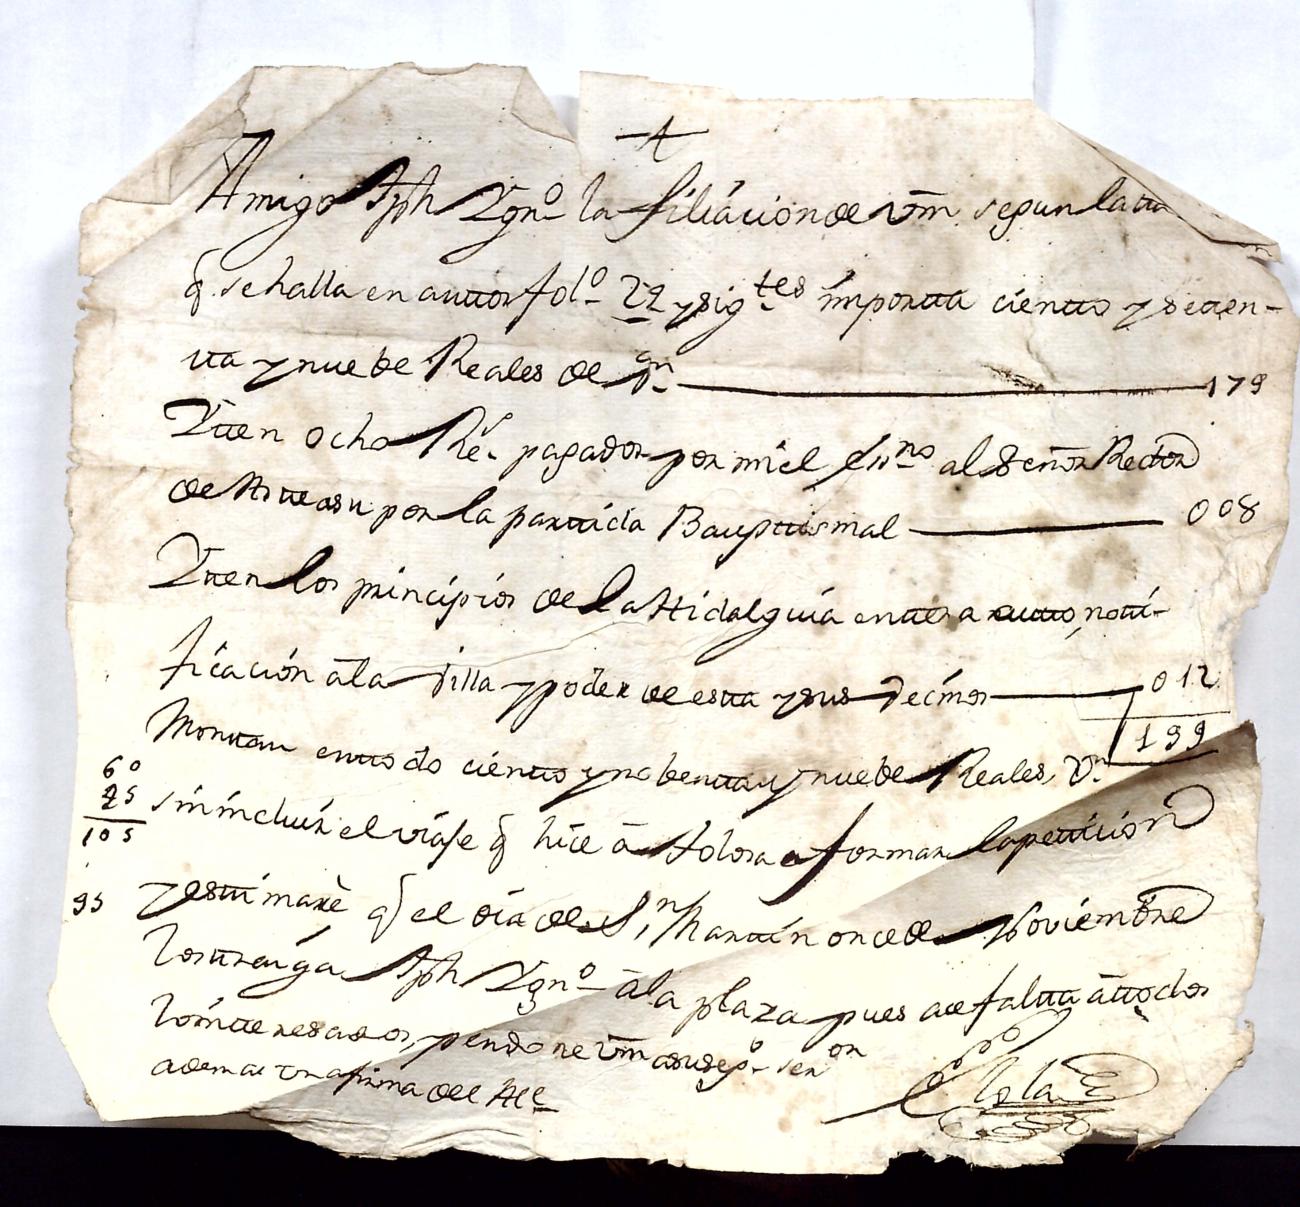 Amigo Jph Ygno la filiacion de Vm segun la tta
q se halla en auttos fol.o 22 y sigtes importta cientto y seten-
tta y nuebe Reales de Vn 179
Ytten ocho Rs pagados por mi el essno al Señor Rector
de Atteasu por la parttida Bauptismal 008
Ytten los principios de la Hidalguia enttera autto, notti-
ficación â la Villa y poder de estta y sus Decimos 012
Monttan en ttodo cientto y nobentta y nuebe Reales Vn 199
60
25
105
sin incluir el viaje q hice â Tolosa a formar la petticion
95
y esttimarè q el dia de Sn Marttin once de Noviembre
los ttraiga Jph Ygno â la plaza pues ace faltta â ttodos
los intteresados, y perdone Vm a su segro seror
ademas una firma del Alle
Elola